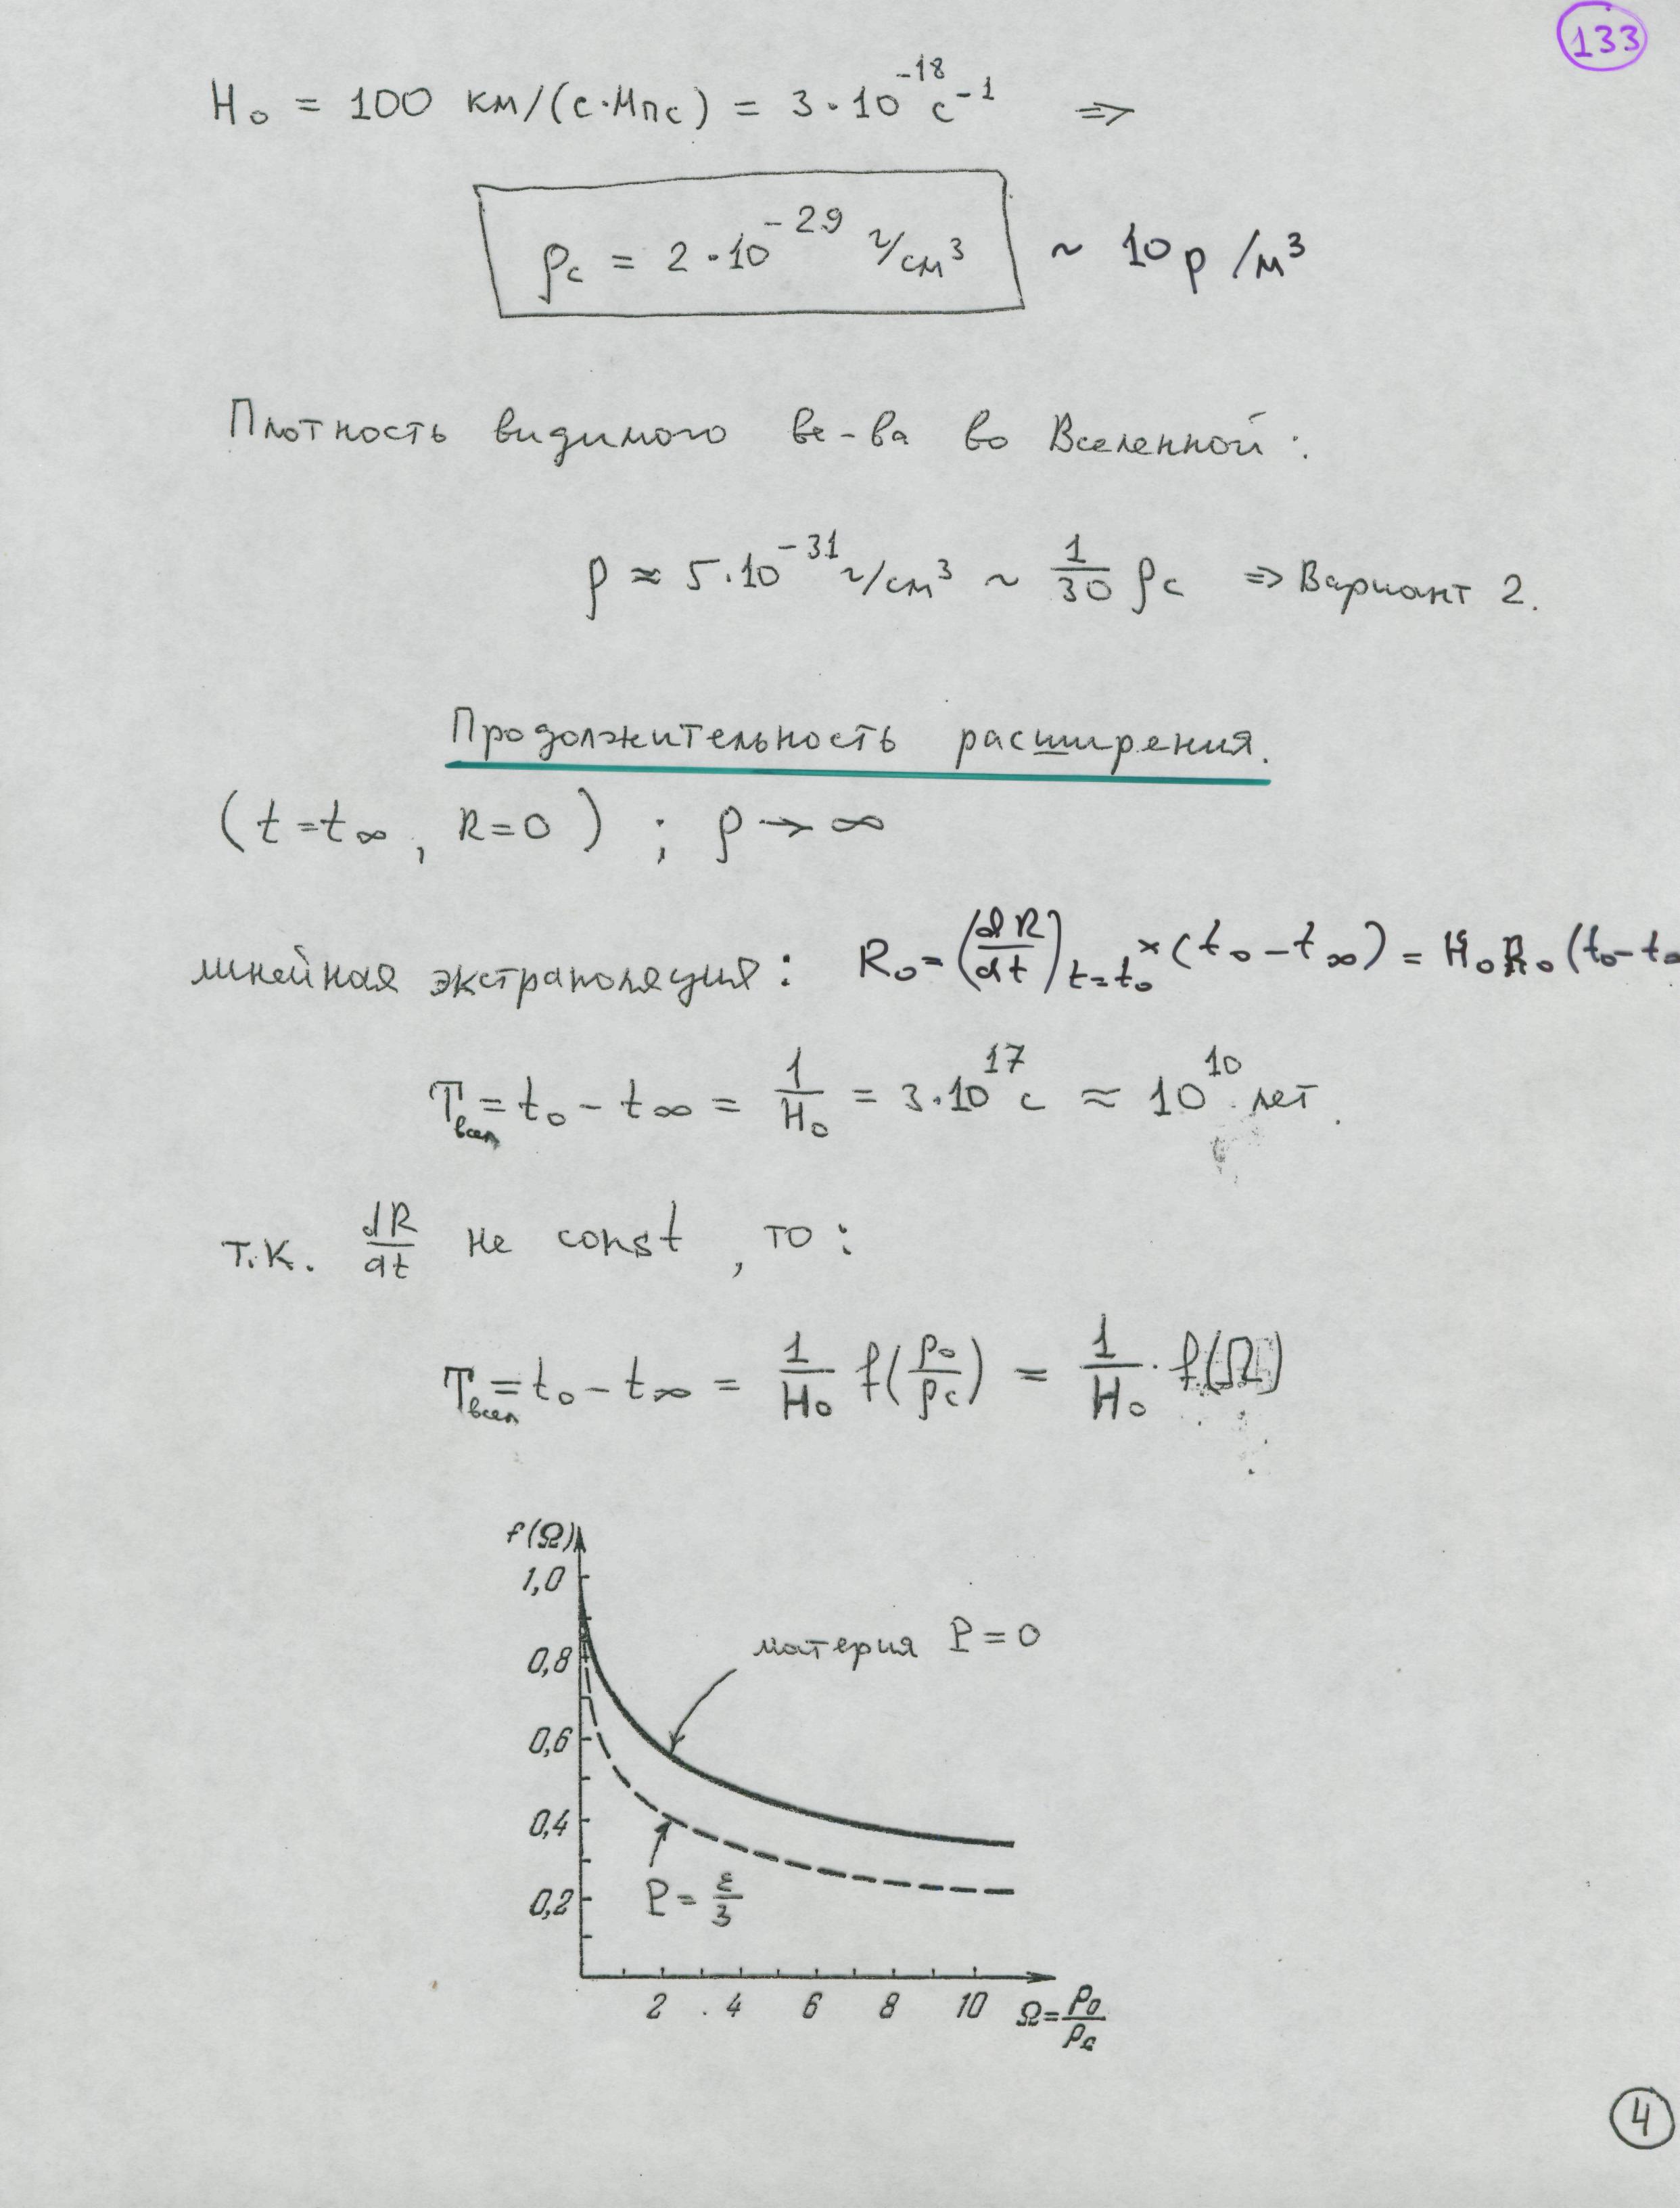 133
H₀ = 100 км/(с·Мпс) = 3·10⁻¹⁸ с⁻¹ ⇒
ρc = 2·10⁻²⁹ г/см³ ~ 10 p /м³
Плотность видимого ве-ва во Вселенной:
ρ ≈ 5·10⁻³¹ г/см³ ~ 1/30 ρc ⇒ Вариант 2.
Продолжительность расширения.
(t=t∞, R=0) ; ρ → ∞
линейная экстраполяция: R₀ = (dR/dt)t=t₀ × (t₀ – t∞) = H₀R₀ (t₀ – t∞
Tвсел = t₀ – t∞ = 1/H₀ = 3·10¹⁷ с ≈ 10¹⁰ лет.
т.к. dR/dt не const, то:
Tвсел = t₀ – t∞ = 1/H₀ f(ρ₀/ρc) = 1/H₀ · f(Ω)
f(Ω)
1,0
материя P = 0
0,8
0,6
0,4
P = ε/3
0,2
2 4 6 8 10 Ω = ρ₀/ρc
4